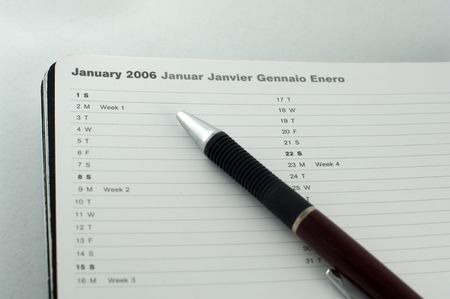 January 2006 Januar Janvier Gennaio Enero
1 S
2 M Week 1
3 T
4 W
5 T
6 F
7 S
8 S
9 M Week 2
10 T
11 W
12 T
13 F
14 S
15 S
16 M Week 3
17 T
18 W
19 T
20 F
21 S
22 S
23 M Week 4
24 T
25 W
31 T